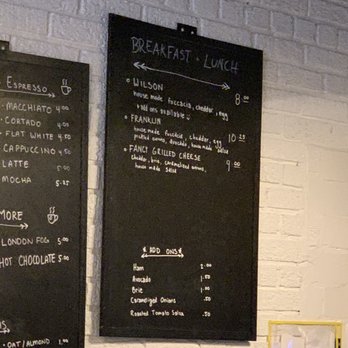 ESPRESSO
- MACCHIATO 4.00
- CORTADO 4.00
- FLAT WHITE 4.50
CAPPUCCINO 4.50
LATTE 5.00
MOCHA 5.25
MORE
LONDON FOG 5.00
HOT CHOCOLATE 5.00
- OAT/ALMOND 1.00
BREAKFAST + LUNCH
WILSON 8.00
house made foccacia, cheddar, egg
+ add ons available
FRANKLIN 10.25
house made foccacia, cheddar, egg
pickled onions, avocado, house made salsa
FANCY GRILLED CHEESE 9.00
cheddar, brie, caramelized onions,
house made salsa
ADD ONS
Ham 2.00
Avocado 1.50
Brie 1.00
Caramelized Onions .50
Roasted Tomato Salsa .50